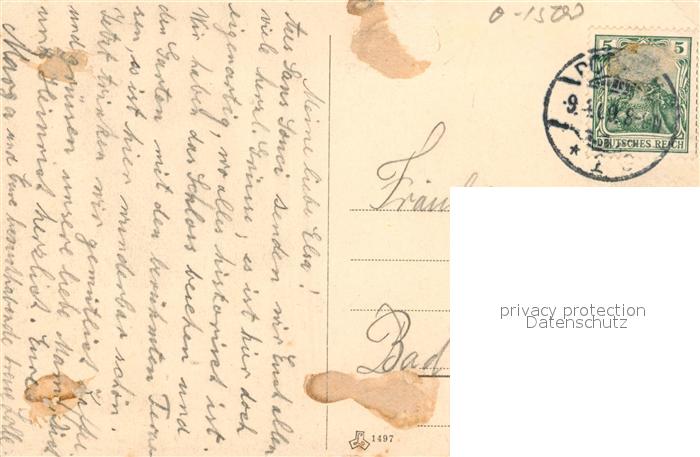 Meine liebe Elsa!
Aus Sans Souci senden wir Euch allen
viele herzl. Grüsse, es ist hier doch
eigenartig, wo alles historisch ist.
Wir haben das Schloss besehen und
den Garten mit den berühmten
es ist hier wunderbar schön.
Jetzt trinken wir gemütlich Kaffee
und grüssen unsere liebe Mama, Dich
und Heinrich herzlich. Eure
und Eure
0-1500
5 5
DEUTSCHES REICH
Fräul
Bad
privacy protection
Datenschutz
1497